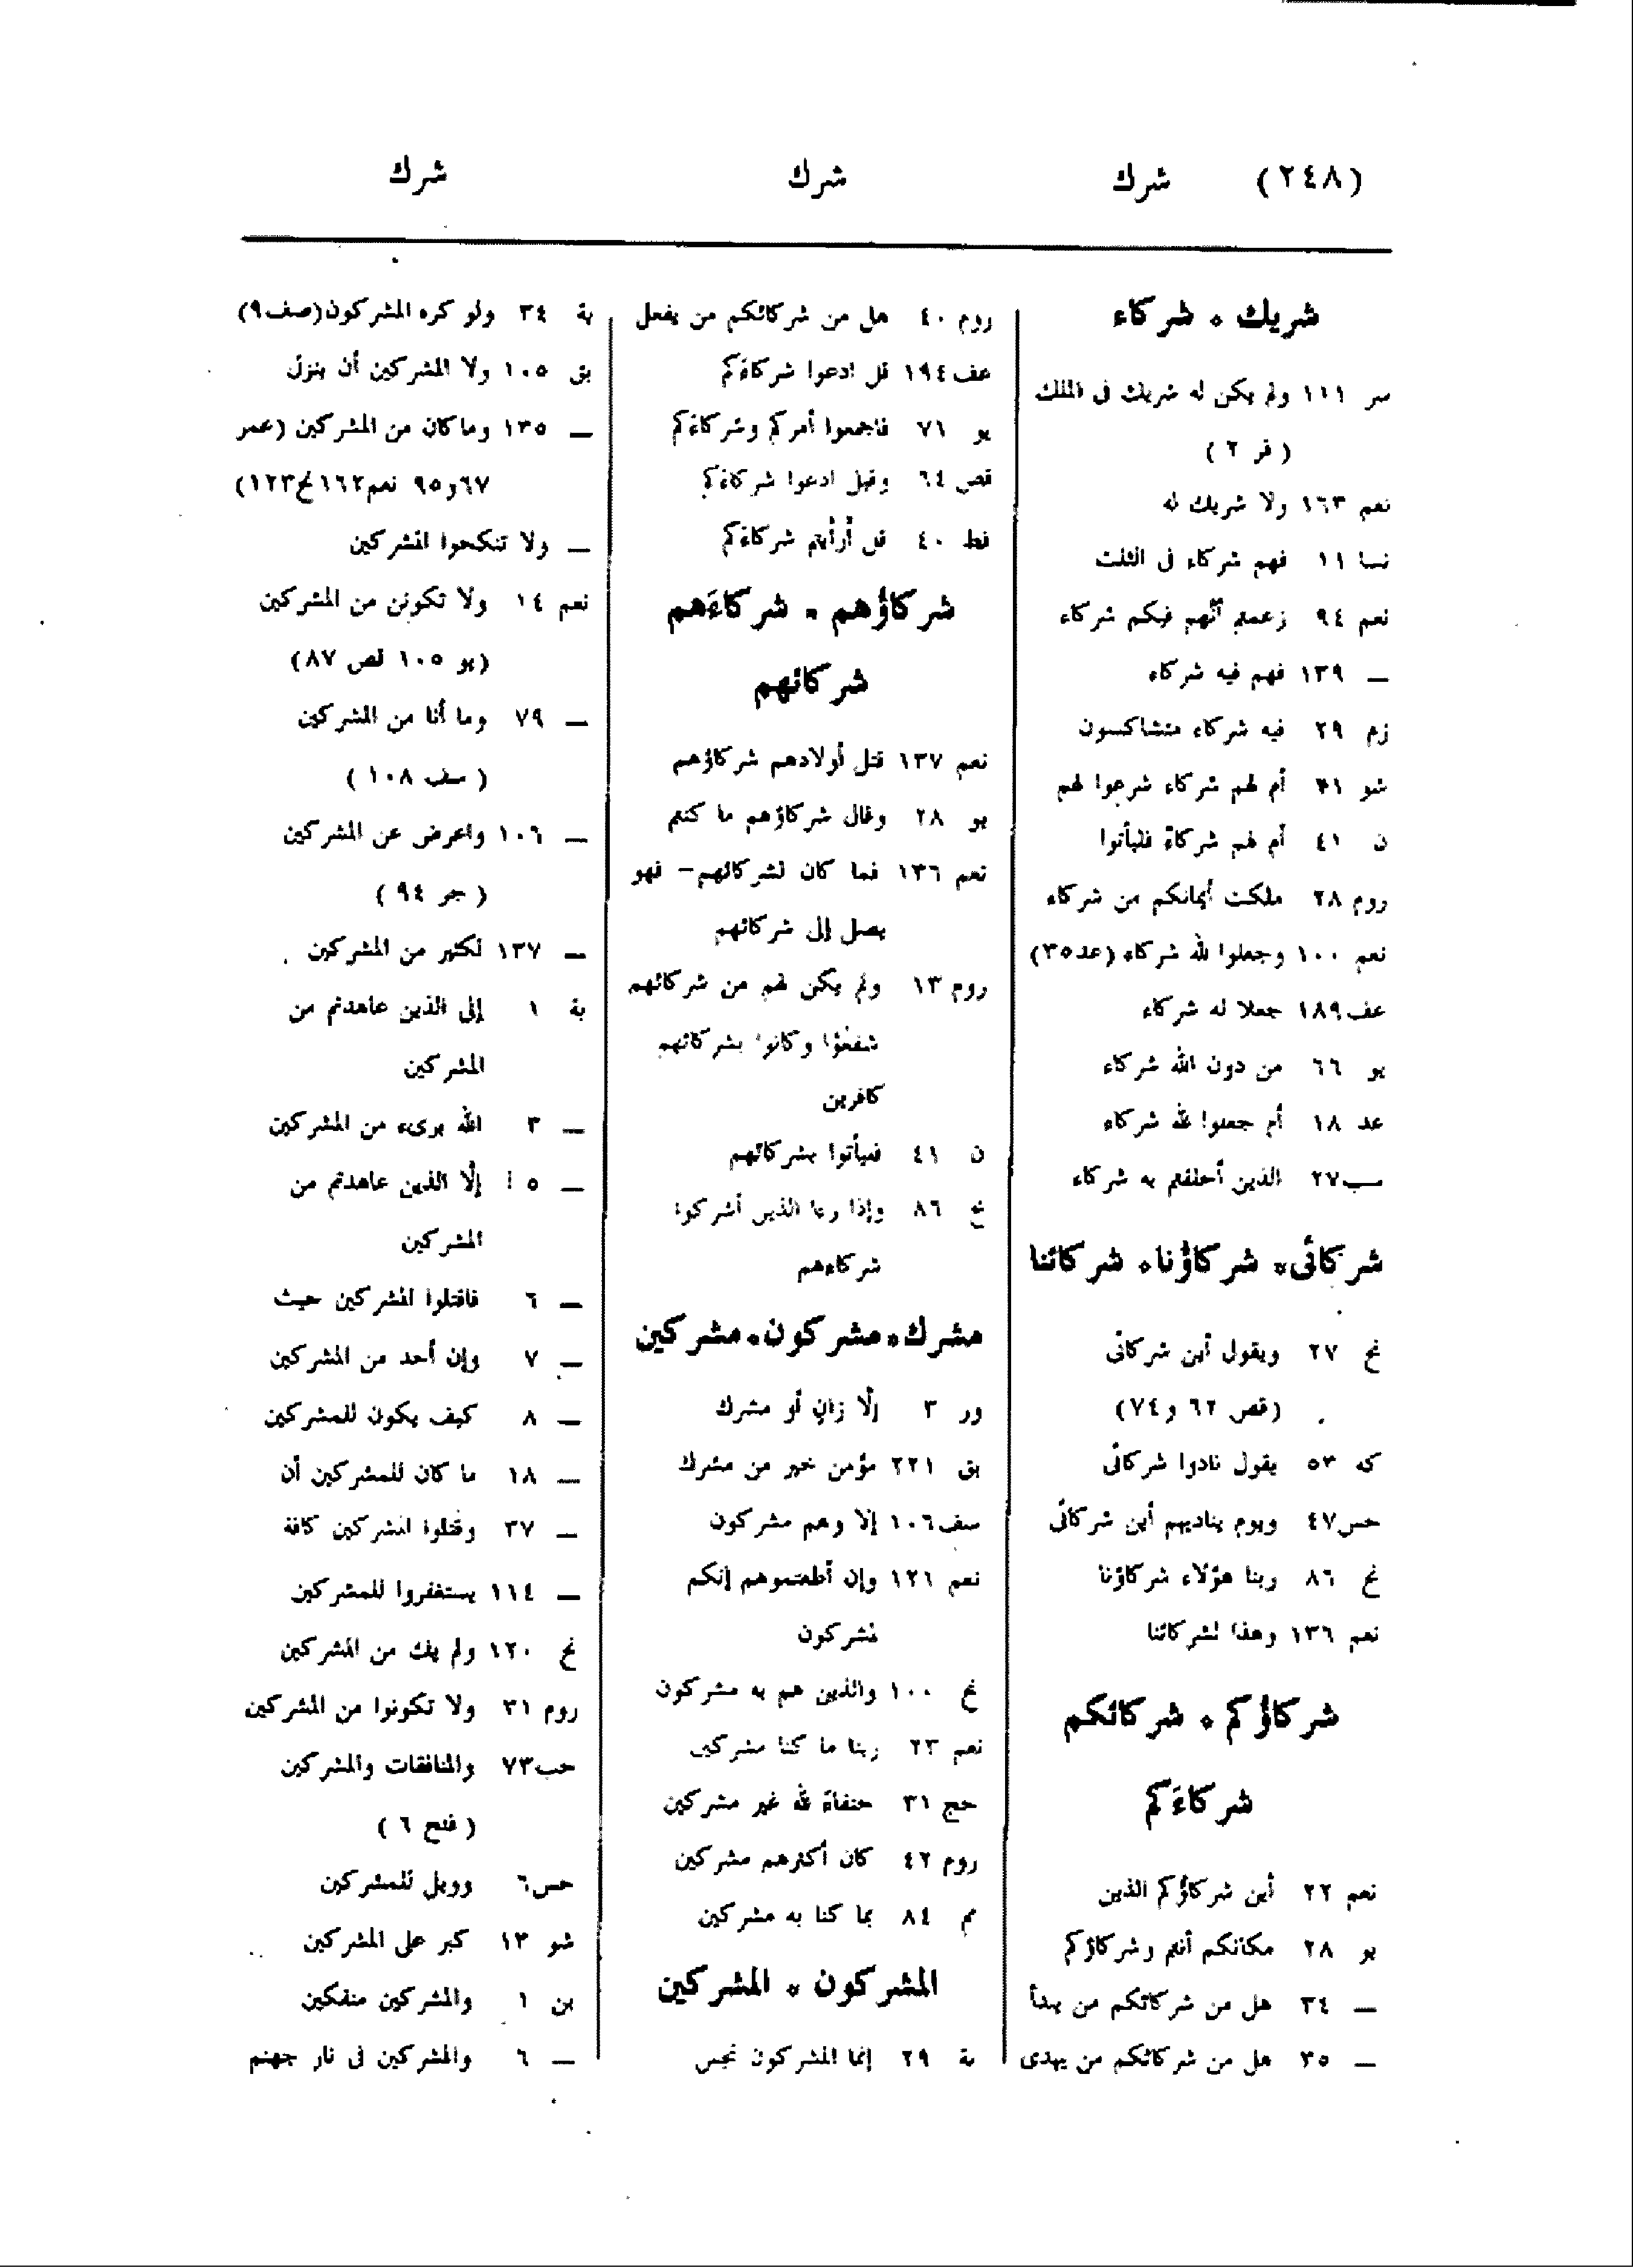 (٢٤٨) شرك شرك شرك
شريك • شركاء
سر ١١١ ولم يكن له شريك فى الملك
( فر ٢ )
نعم ١٦٣ ولا شريك له
نسا ١١ فهم شركاء فى الثلث
نعم ٩٤ زعمتم أنّهم فيكم شركاء
— ١٣٩ فهم فيه شركاء
زم ٢٩ فيه شركاء متشاكسون
شو ٢١ أم لهم شركاء شرعوا لهم
ن ٤١ أم لهم شركاءٌ فليأتوا
روم ٢٨ ملكت أيمانكم من شركاء
نعم ١٠٠ وجعلوا لله شركاء (عد٣٥)
عف١٨٩ جعلا له شركاء
يو ٦٦ من دون الله شركاء
عد ١٨ أم جعلوا لله شركاء
سب٢٧ الذين أحلقتم به شركاء
شركائى• شركاؤنا• شركائنا
نح ٢٧ ويقول أين شركائى
(قص ٦٢ و٧٤)
كه ٥٣ يقول نادوا شركائى
حس٤٧ ويوم يناديهم أين شركائى
نح ٨٦ ربنا هؤلاء شركاؤنا
نعم ١٣٦ وهذا لشركائنا
شركاؤكم • شركائكم
شركاءَكم
نعم ٢٢ أين شركاؤكم الذين
يو ٢٨ مكانكم أنتم وشركاؤكم
— ٣٤ هل من شركائكم من يبدأ
— ٣٥ هل من شركائكم من يهدى
روم ٤٠ هل من شركائكم من يفعل
عف١٩٤ قل ادعوا شركاءَكم
يو ٧١ فاجمعوا أمركم وشركاءَكم
قص ٦٤ وقيل ادعوا شركاءَكم
فط ٤٠ قل أرأيتم شركاءَكم
شركاؤهم • شركاءَهم
شركائهم
نعم ١٣٧ قتل أولادهم شركاؤهم
يو ٢٨ وقال شركاؤهم ما كنتم
نعم ١٣٦ فما كان لشركائهم– فهو
يصل إلى شركائهم
روم ١٣ ولم يكن لهم من شركائهم
شفعؤا وكانوا بشركائهم
كافرين
ن ٤١ فليأتوا بشركائهم
نح ٨٦ وإذا رءا الذين أشركوا
شركاءهم
مشرك•مشركون•مشركين
ور ٣ إلّا زانٍ أو مشرك
بق ٢٢١ مؤمن خير من مشرك
سف١٠٦ إلا وهم مشركون
نعم ١٢١ وإن أطعتموهم إنكم
لمشركون
نح ١٠٠ والذين هم به مشركون
نعم ٢٣ ربنا ما كنا مشركين
حج ٣١ حنفاءَ لله غير مشركين
روم ٤٢ كان أكثرهم مشركين
مم ٨٤ بما كنا به مشركين
المشركون • المشركين
بة ٢٩ إنما المشركون نجس
بة ٣٤ ولو كره المشركون(صف٩)
بق ١٠٥ ولا المشركين أن ينزل
— ١٣٥ وما كان من المشركين (عمر
٦٧و٩٥ نعم١٦٢نح١٢٣)
— ولا تنكحوا المشركين
نعم ١٤ ولا تكونن من المشركين
(يو ١٠٥ قص ٨٧)
— ٧٩ وما أنا من المشركين
( سف ١٠٨ )
— ١٠٦ واعرض عن المشركين
( جر ٩٤ )
— ١٣٧ لكثير من المشركين
بة ١ إلى الذين عاهدتم من
المشركين
— ٣ الله برىء من المشركين
— ٥ إلّا الذين عاهدتم من
المشركين
— ٦ فاقتلوا المشركين حيث
— ٧ وإن أحد من المشركين
— ٨ كيف يكون للمشركين
— ١٨ ما كان للمشركين أن
— ٣٧ وقتلوا المشركين كافة
— ١١٤ يستغفروا للمشركين
نح ١٢٠ ولم يك من المشركين
روم ٣١ ولا تكونوا من المشركين
حب٧٣ والمنافقات والمشركين
( فتح ٦ )
حس٦ وويل للمشركين
شو ١٣ كبر على المشركين
بن ١ والمشركين منفكين
— ٦ والمشركين فى نار جهنم